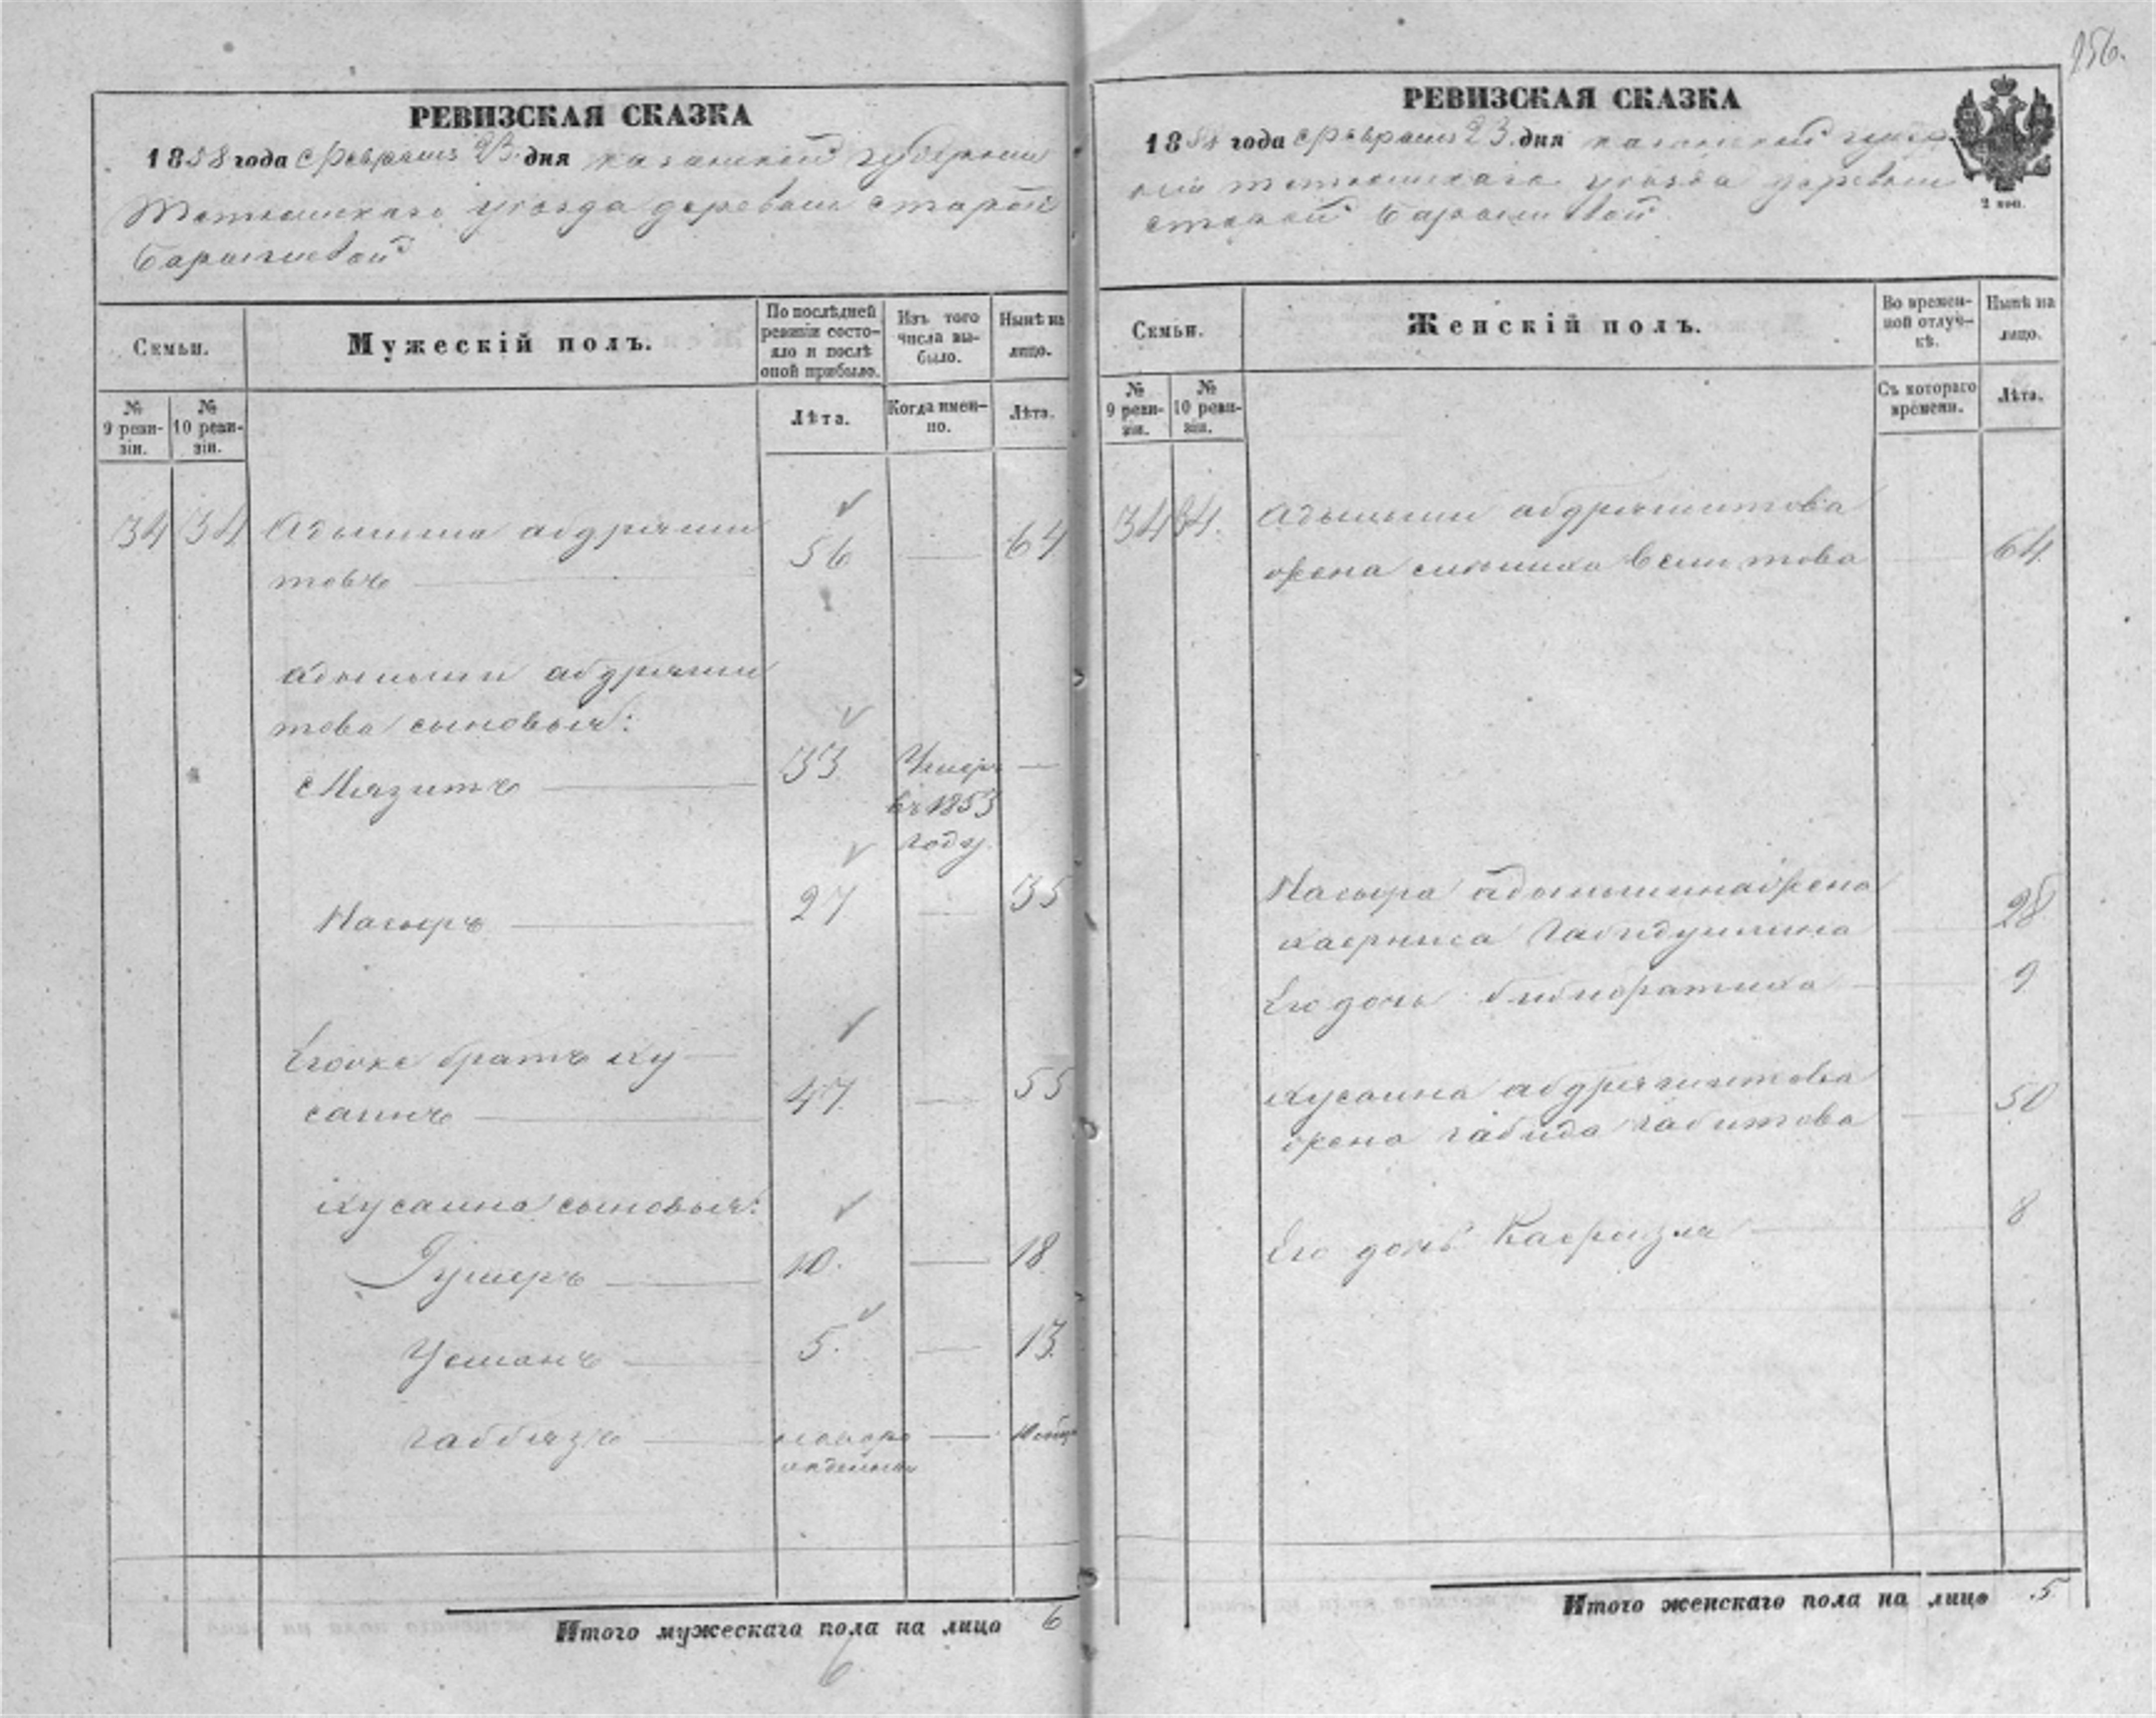 256.
РЕВИЗСКАЯ СКАЗКА
1858 года Февраля 23 дня казанской губернии
Тетюшскаго уѣзда деревни старой
Барышевой
Семьи.
Мужескій полъ.
По послѣдней ревизіи состояло и послѣ оной прибыло.
Изъ того числа выбыло.
Нынѣ на лицо.
№ 9 ревизіи.
№ 10 ревизіи.
Лѣта.
Когда именно.
Лѣта.
34 34 абдряши 56 — 64
товъ
абдряши
това сыновья:
Мязитъ 33 Умеръ —
въ 1853
году
Насыръ 27 — 35
Егоже братъ ху
саинъ 47 — 55
хусаина сыновья:
Гумеръ 10. — 18
Усманъ 5. — 13.
габбязъ новоро —
жденный
Итого мужескаго пола на лицо 6
6
РЕВИЗСКАЯ СКАЗКА
1858 года Февраля 23 дня казанской губер
ніи тетюшскаго уѣзда деревни
старой Барышевой
2 коп.
Семьи.
Женскій полъ.
Во временной отлучкѣ.
Нынѣ на лицо.
№ 9 ревизіи.
№ 10 ревизіи.
Съ котораго времени.
Лѣта.
34 34. абдряшитова
жена 64
Насыра жена
28
Его дочь бибифатиха 9
хусаина абдряшитова
жена габида габитова 50
Его дочь 8
Итого женскаго пола на лицо 5